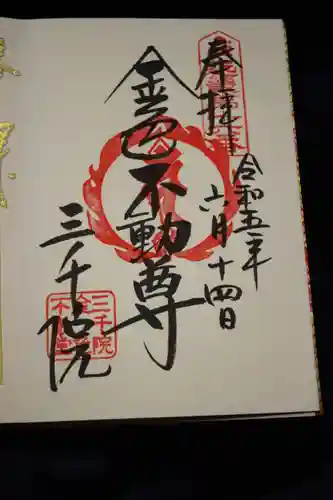 奉拝
令和五年
六月十四日
金色不動尊
三千院
三千院